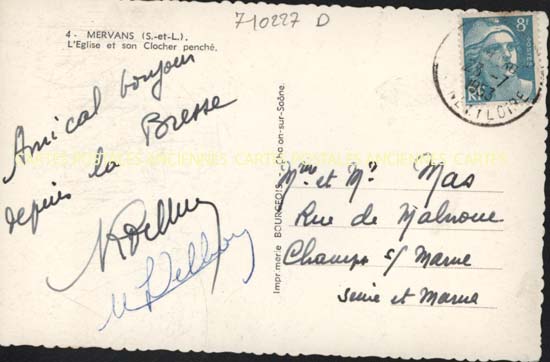 710227 D
4 - MERVANS (S.-et-L.).
L'Eglise et son Clocher penché.
8F
POSTES
RF
ET LOIRE
Amical bonjour
depuis la Bresse
CARTES POSTALES ANCIENNES CARTES POSTALES ANCIENNES CARTES
Imprimerie BOURGEOIS, Chalon-sur-Saône.
Mme et Mr Mas
Rue de Malnoue
Champs s/ Marne
Seine et Marne